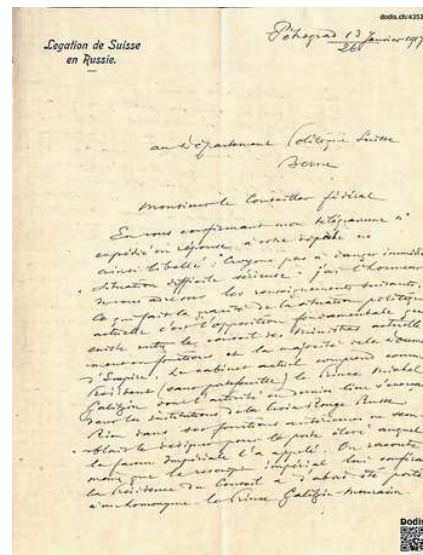 dodis.ch/4353
Legation de Suisse
en Russie.
Pétrograd 13/26 Janvier 1917
au Département Politique Suisse
Berne
Monsieur le Conseiller fédéral
En vous confirmant mon télégramme
expédié en réponse à votre dépêche
ainsi libellé: "Croyons pas à danger
situation difficile sérieuse" j'ai l'honneur
les renseignements suivants.
Ce qui fait la gravité de la situation politique
actuelle c'est l'opposition fondamentale
existe entre le conseil des ministres actuelle
ment en fonctions et la majorité
d'Empire. Le cabinet actuel comprend comme
Président (sans portefeuille) le Prince Michel
Galitzin dont l'activité en dernier lieu
dans les institutions de la Croix Rouge Russe
Rien dans ses fonctions antérieures ne sem
blait le désigner pour le poste élevé auquel
la faveur Impériale l'a appelé. On raconte
même que le rescript impérial lui
la Présidence du Conseil a d'abord été porté
à un homonyme le Prince Galitzin-Mouravlin.
Dodis